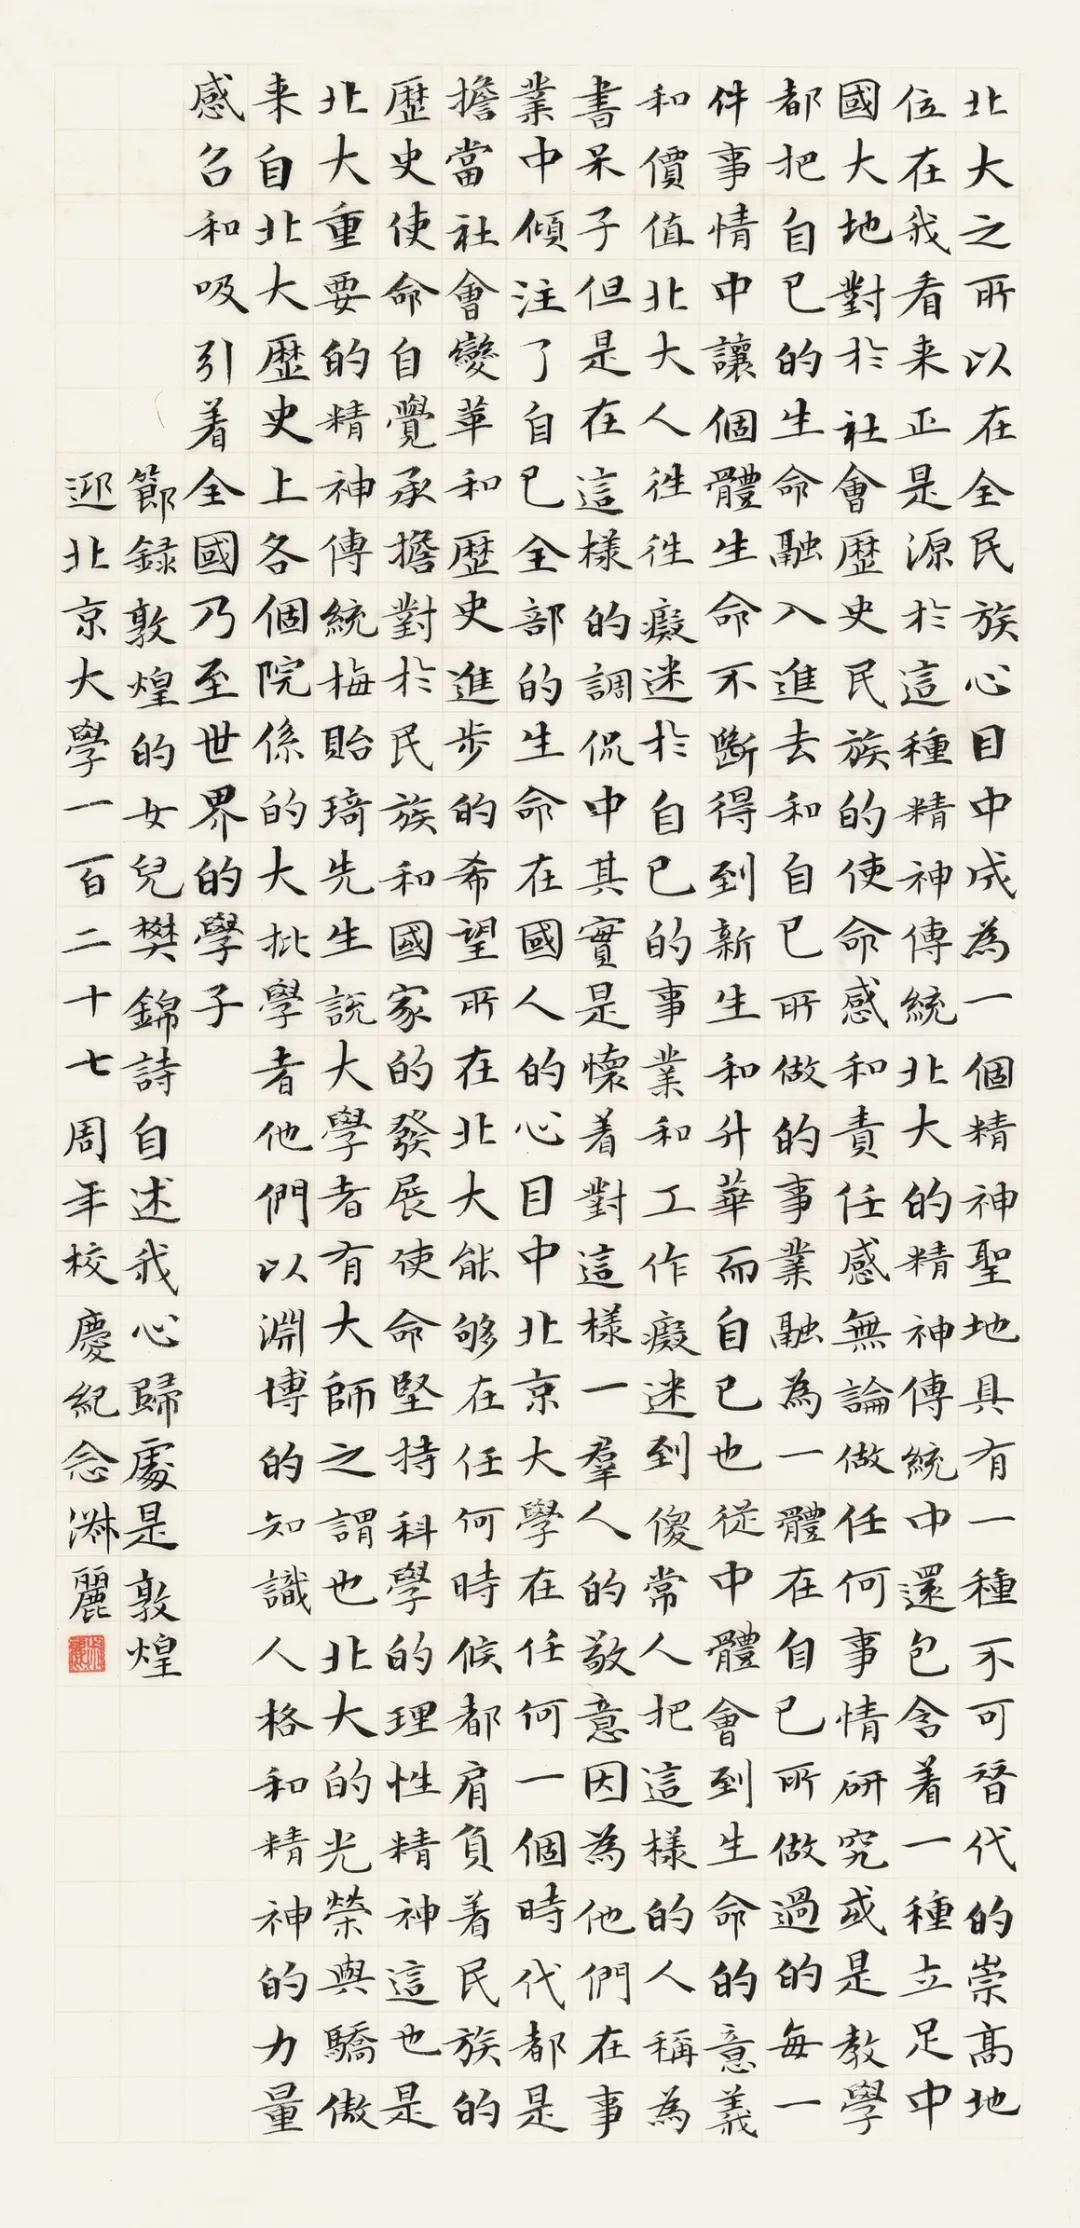 北大之所以在全民族心目中成為一個精神聖地具有一種不可替代的崇高地
位在我看来正是源於這種精神傳統北大的精神傳統中還包含着一種立足中
國大地對於社會歷史民族的使命感和責任感無論做任何事情研究或是教學
都把自己的生命融入進去和自己所做的事業融為一體在自己所做過的每一
件事情中讓個體生命不斷得到新生和升華而自己也從中體會到生命的意義
和價值北大人往往癡迷於自己的事業和工作癡迷到傻常人把這樣的人稱為
書呆子但是在這樣的調侃中其實是懷着對這樣一羣人的敬意因為他們在事
業中傾注了自己全部的生命在國人的心目中北京大學在任何一個時代都是
擔當社會變革和歷史進步的希望所在北大能够在任何時候都肩負着民族的
歷史使命自覺承擔對於民族和國家的發展使命堅持科學的理性精神這也是
北大重要的精神傳統梅貽琦先生説大學者有大師之謂也北大的光榮與驕傲
来自北大歷史上各個院係的大批學者他們以淵博的知識人格和精神的力量
感召和吸引着全國乃至世界的學子
節録敦煌的女兒樊錦詩自述我心歸處是敦煌
迎北京大學一百二十七周年校慶紀念淋麗